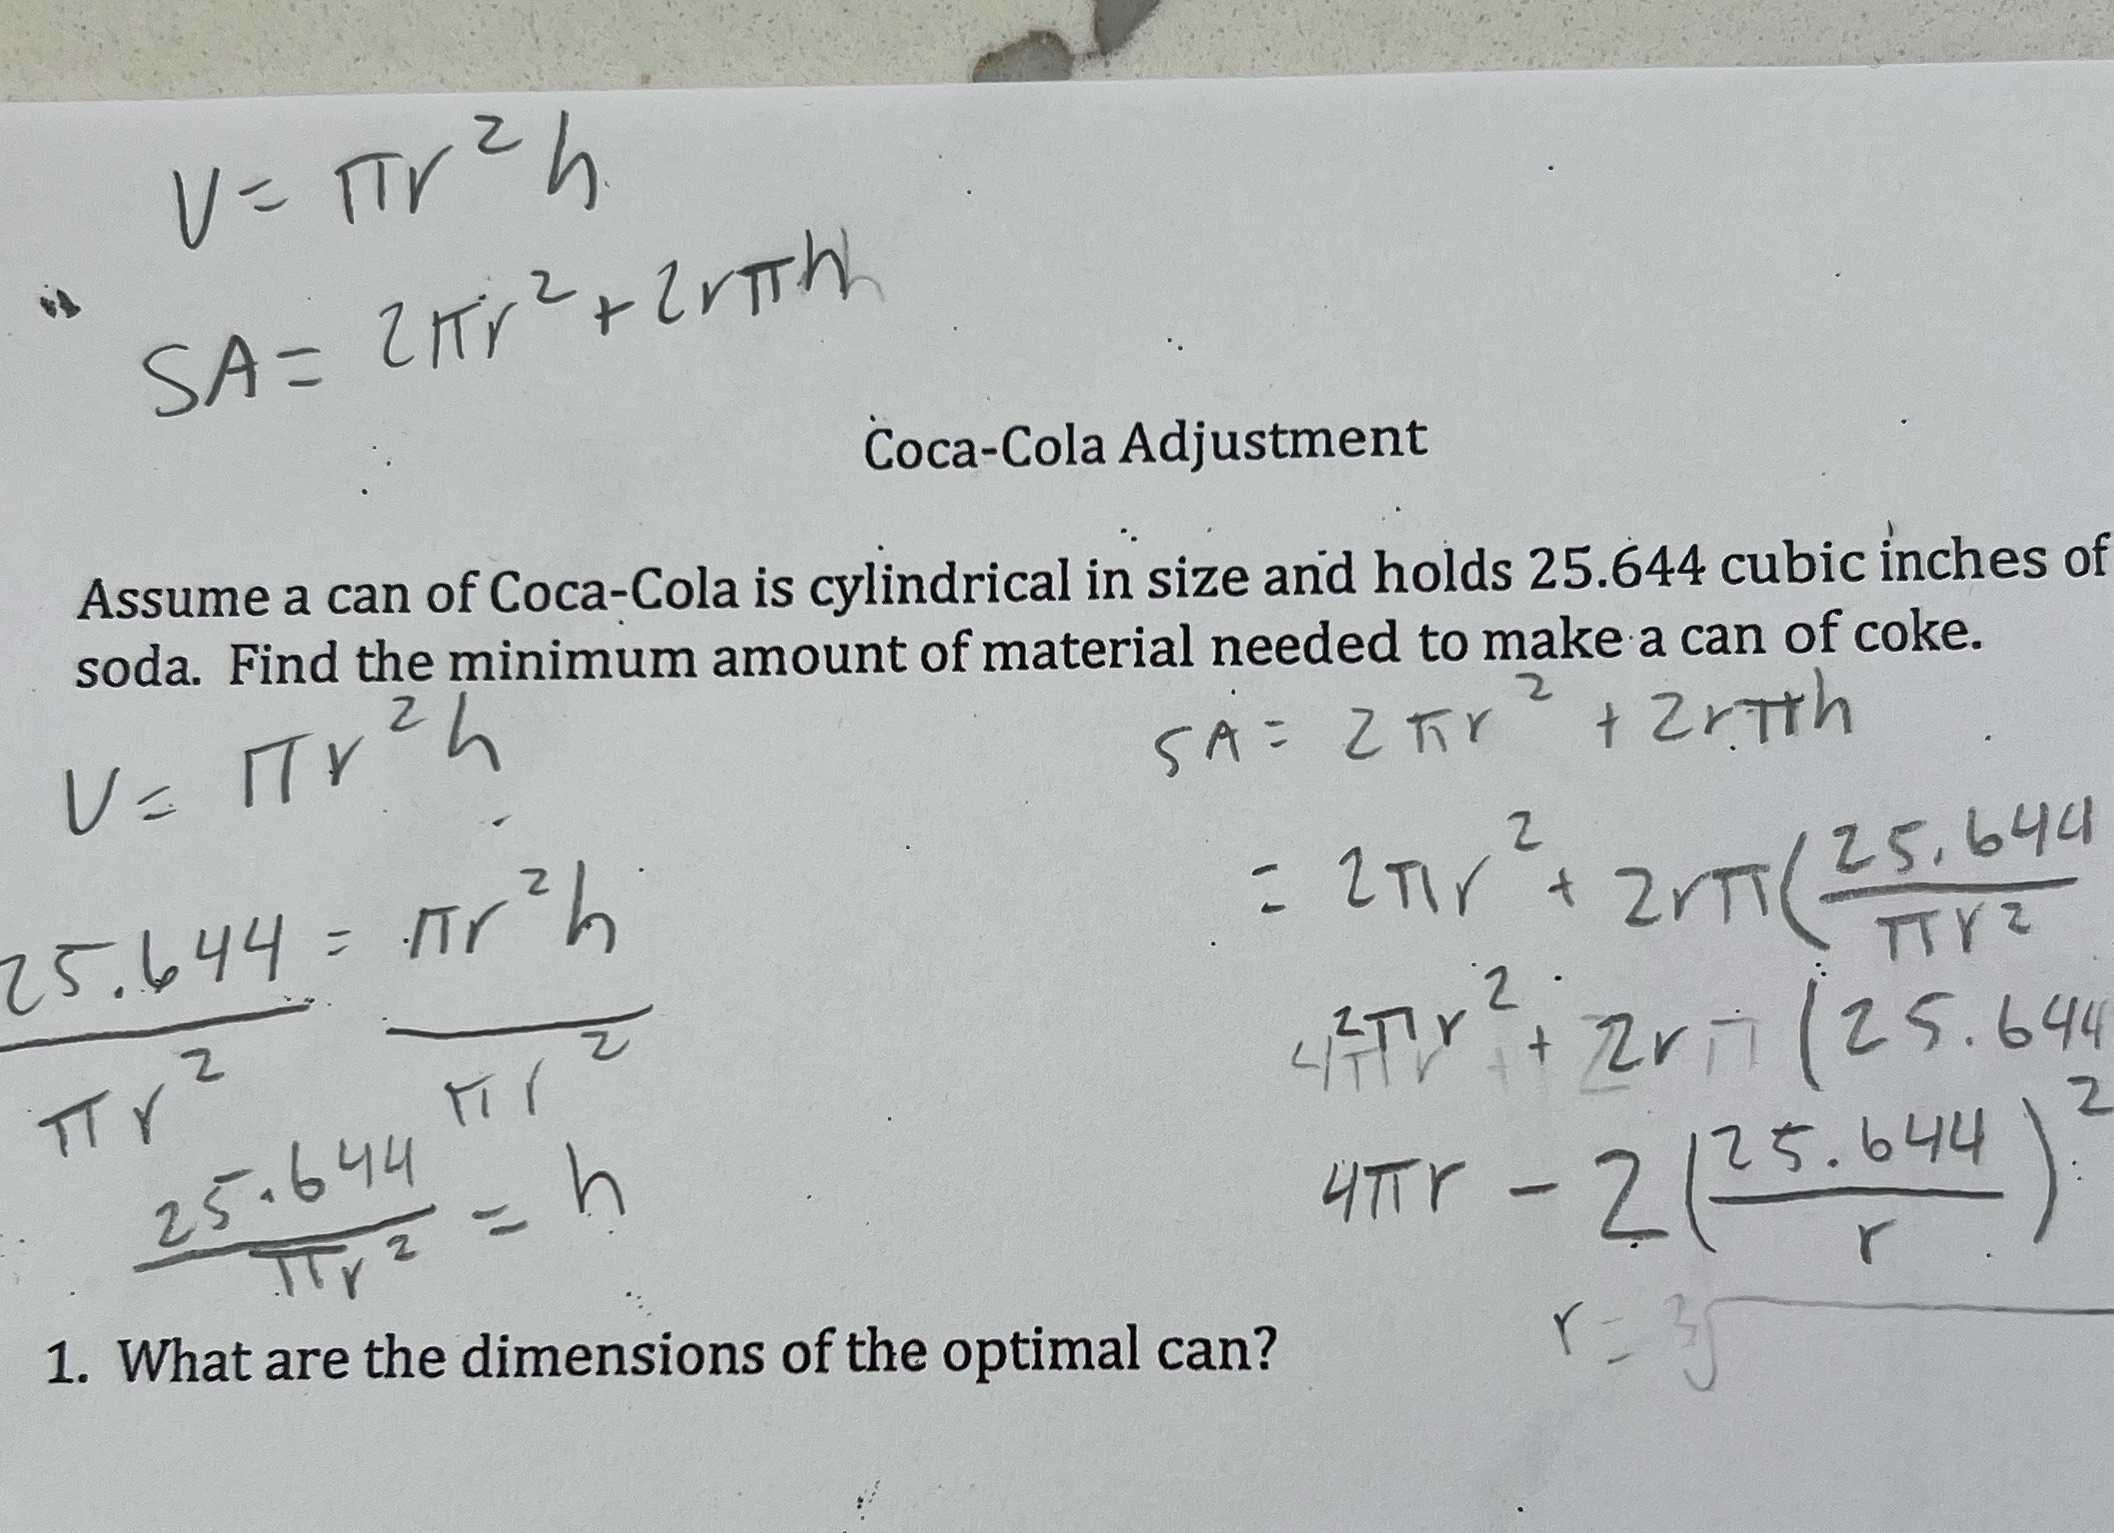 V = πr²h
SA = 2πr² + 2rπh
Coca-Cola Adjustment
Assume a can of Coca-Cola is cylindrical in size and holds 25.644 cubic inches of
soda. Find the minimum amount of material needed to make a can of coke.
V = πr²h
25.644 = πr²h
πr² πr²
25.644 = h
πr²
SA = 2πr² + 2rπh
= 2πr² + 2rπ(25.644
πr²
2πr² + 2r (25.644
4πr - 2(25.644)²
r
r = 3√
1. What are the dimensions of the optimal can?